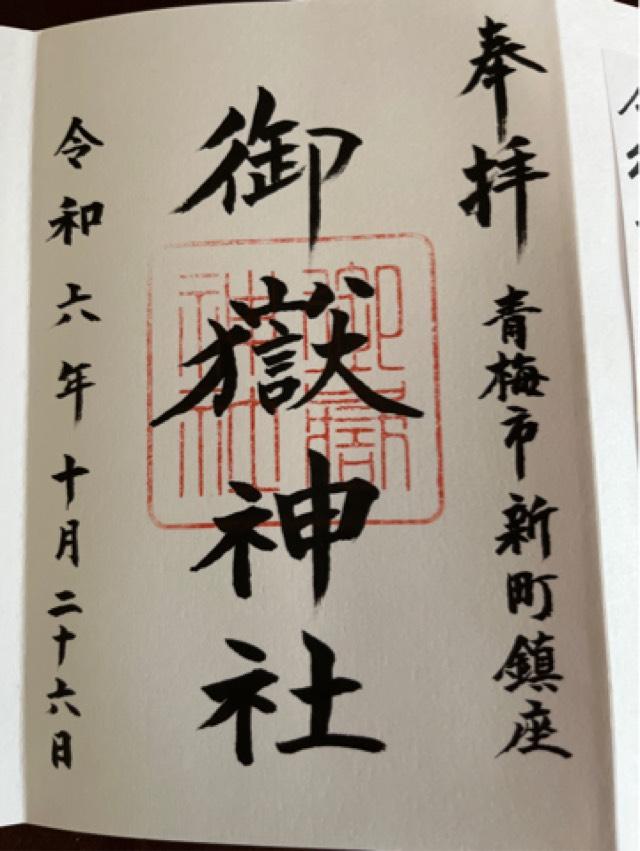 奉拝
青梅市新町鎮座
御嶽神社
令和六年十月二十六日